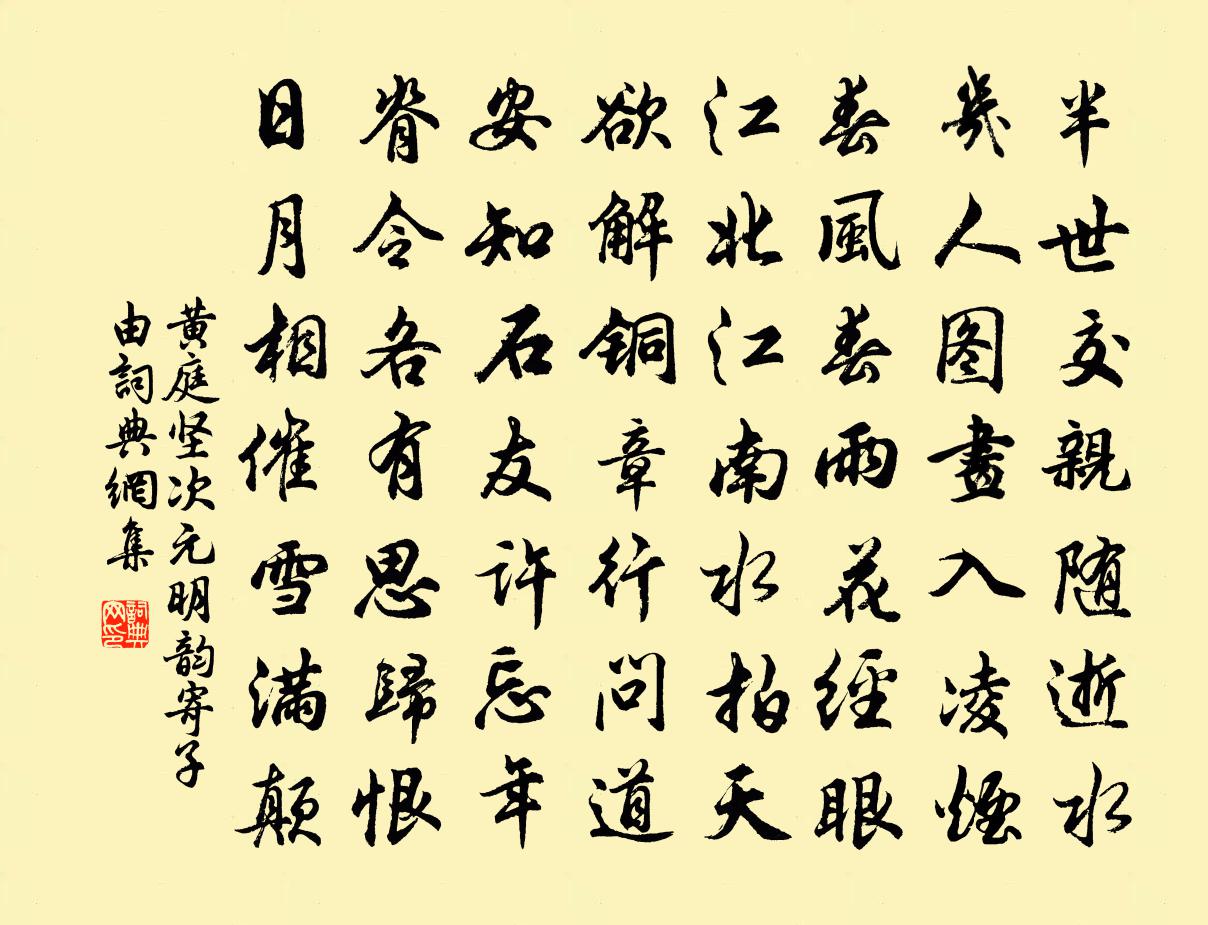 半世交親随逝水
幾人图畫入凌煙
春風春雨花經眼
江北江南水拍天
欲解铜章行问道
安知石友许忘年
脊令各有思歸恨
日月相催雪满颠
黄庭坚次元明韵寄子
由詞典網集
詞典网印